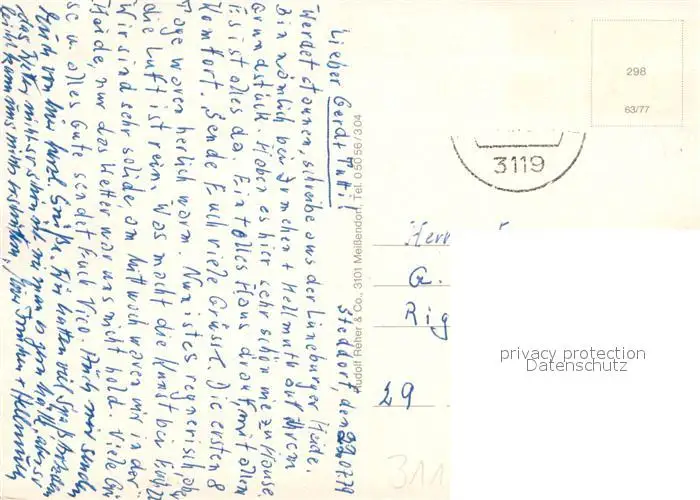 Steddorf, den 29.07.79
Lieber Gerd + Putti!
Werdet staunen, schreibe aus der Lüneburger Heide.
Bin nämlich bei Irmchen + Hellmuth auf Ihrem
Grundstück. Haben es hier sehr schön wie zu Hause.
Es ist alles da. Ein tolles Haus drauf mit allem
Komfort. Sende Euch viele Grüsse. Die ersten 8
Tage waren herlich warm. Nun ist es regnerisch aber
die Luft ist rein. Was macht die Kunst bei Euch?
Wir sind sehr solide am Mittwoch waren wir in der
Heide, nur das Wetter war uns nicht hold. Viele Grü
sse u. alles Gute sendet Euch Vico.
Auch von mir herzl. Grüße. Wir hatten viel Spaß
Irmchen + Hellmuth
Rudolf Reher & Co., 3101 Meißendorf, Tel. 05056/304
298
63/77
3119
Herr
G.
Rig
29
311
privacy protection
Datenschutz